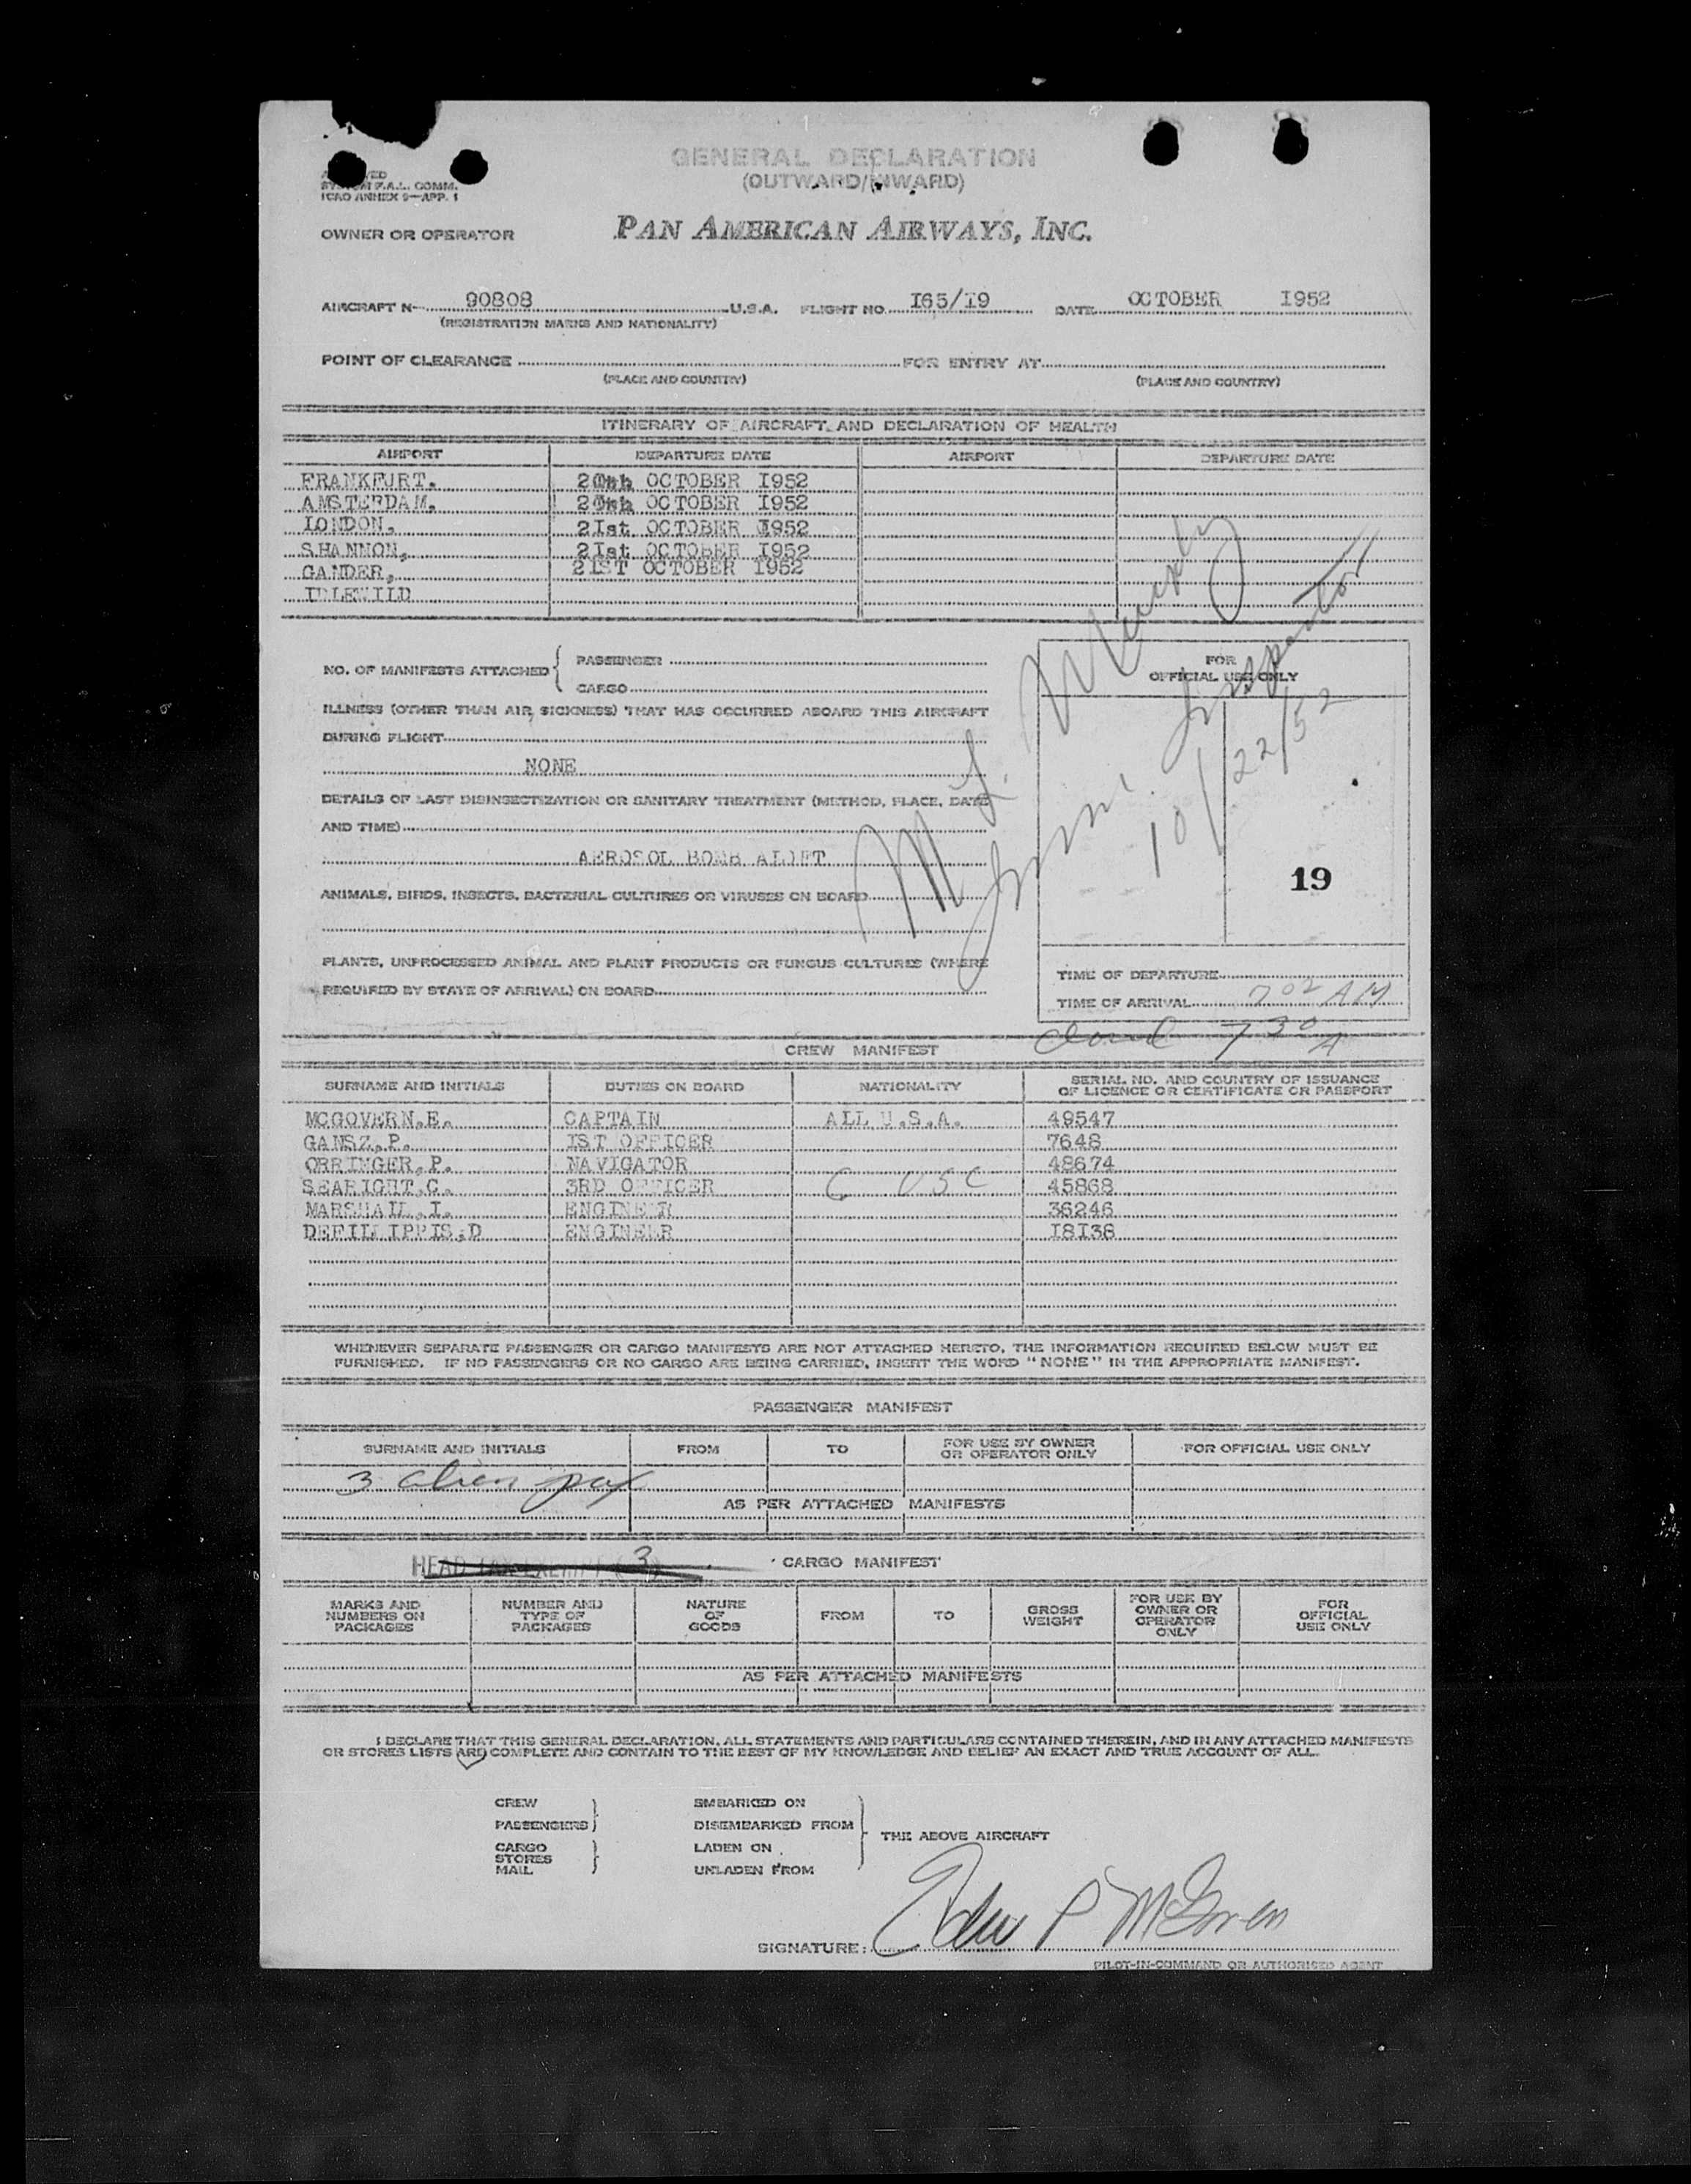 GENERAL DECLARATION
(OUTWARD/INWARD)
F.A.L. COMM.
ICAO ANNEX 9—APP. 1
OWNER OR OPERATOR PAN AMERICAN AIRWAYS, INC.
AIRCRAFT N- 90808 U.S.A. FLIGHT NO. I65/I9 DATE OCTOBER I952
(REGISTRATION MARKS AND NATIONALITY)
POINT OF CLEARANCE FOR ENTRY AT
(PLACE AND COUNTRY) (PLACE AND COUNTRY)
ITINERARY OF AIRCRAFT AND DECLARATION OF HEALTH
AIRPORT DEPARTURE DATE AIRPORT DEPARTURE DATE
FRANKFURT. 20th OCTOBER I952
AMSTERDAM. 20th OCTOBER I952
LONDON. 2Ist OCTOBER I952
SHANNON. 2Ist OCTOBER I952
GANDER. 2IST OCTOBER I952
IDLEWILD
NO. OF MANIFESTS ATTACHED { PASSENGER
CARGO
FOR
OFFICIAL USE ONLY
ILLNESS (OTHER THAN AIR SICKNESS) THAT HAS OCCURRED ABOARD THIS AIRCRAFT
DURING FLIGHT
NONE
DETAILS OF LAST DISINSECTIZATION OR SANITARY TREATMENT (METHOD, PLACE, DATE
AND TIME)
AEROSOL BOMB ALOFT
ANIMALS, BIRDS, INSECTS, BACTERIAL CULTURES OR VIRUSES ON BOARD
PLANTS, UNPROCESSED ANIMAL AND PLANT PRODUCTS OR FUNGUS CULTURES (WHERE
REQUIRED BY STATE OF ARRIVAL) ON BOARD
Imm. Inspector
10/22/52
19
TIME OF DEPARTURE
TIME OF ARRIVAL 7 02 AM
7 30 A
CREW MANIFEST
SURNAME AND INITIALS DUTIES ON BOARD NATIONALITY SERIAL NO. AND COUNTRY OF ISSUANCE
OF LICENCE OR CERTIFICATE OR PASSPORT
MCGOVERN.E. CAPTAIN ALL U.S.A. 49547
GANSZ.P. IST OFFICER 7648
ORRINGER.P. NAVIGATOR 48674
SEARIGHT.C. 3RD OFFICER 6 USC 45868
MARSHALL.I. ENGINEER 36246
DEFILIPPIS.D ENGINEER I8I38
WHENEVER SEPARATE PASSENGER OR CARGO MANIFESTS ARE NOT ATTACHED HERETO, THE INFORMATION REQUIRED BELOW MUST BE
FURNISHED. IF NO PASSENGERS OR NO CARGO ARE BEING CARRIED, INSERT THE WORD "NONE" IN THE APPROPRIATE MANIFEST.
PASSENGER MANIFEST
SURNAME AND INITIALS FROM TO FOR USE BY OWNER
OR OPERATOR ONLY FOR OFFICIAL USE ONLY
3 alien pax
AS PER ATTACHED MANIFESTS
HEAD TAX EXEMPT (3)
CARGO MANIFEST
MARKS AND
NUMBERS ON
PACKAGES
NUMBER AND
TYPE OF
PACKAGES
NATURE
OF
GOODS
FROM
TO
GROSS
WEIGHT
FOR USE BY
OWNER OR
OPERATOR
ONLY
FOR
OFFICIAL
USE ONLY
AS PER ATTACHED MANIFESTS
I DECLARE THAT THIS GENERAL DECLARATION, ALL STATEMENTS AND PARTICULARS CONTAINED THEREIN, AND IN ANY ATTACHED MANIFESTS
OR STORES LISTS ARE COMPLETE AND CONTAIN TO THE BEST OF MY KNOWLEDGE AND BELIEF AN EXACT AND TRUE ACCOUNT OF ALL.
CREW EMBARKED ON
PASSENGERS DISEMBARKED FROM
THE ABOVE AIRCRAFT
CARGO LADEN ON
STORES
MAIL UNLADEN FROM
SIGNATURE: P McGovern
PILOT-IN-COMMAND OR AUTHORISED AGENT